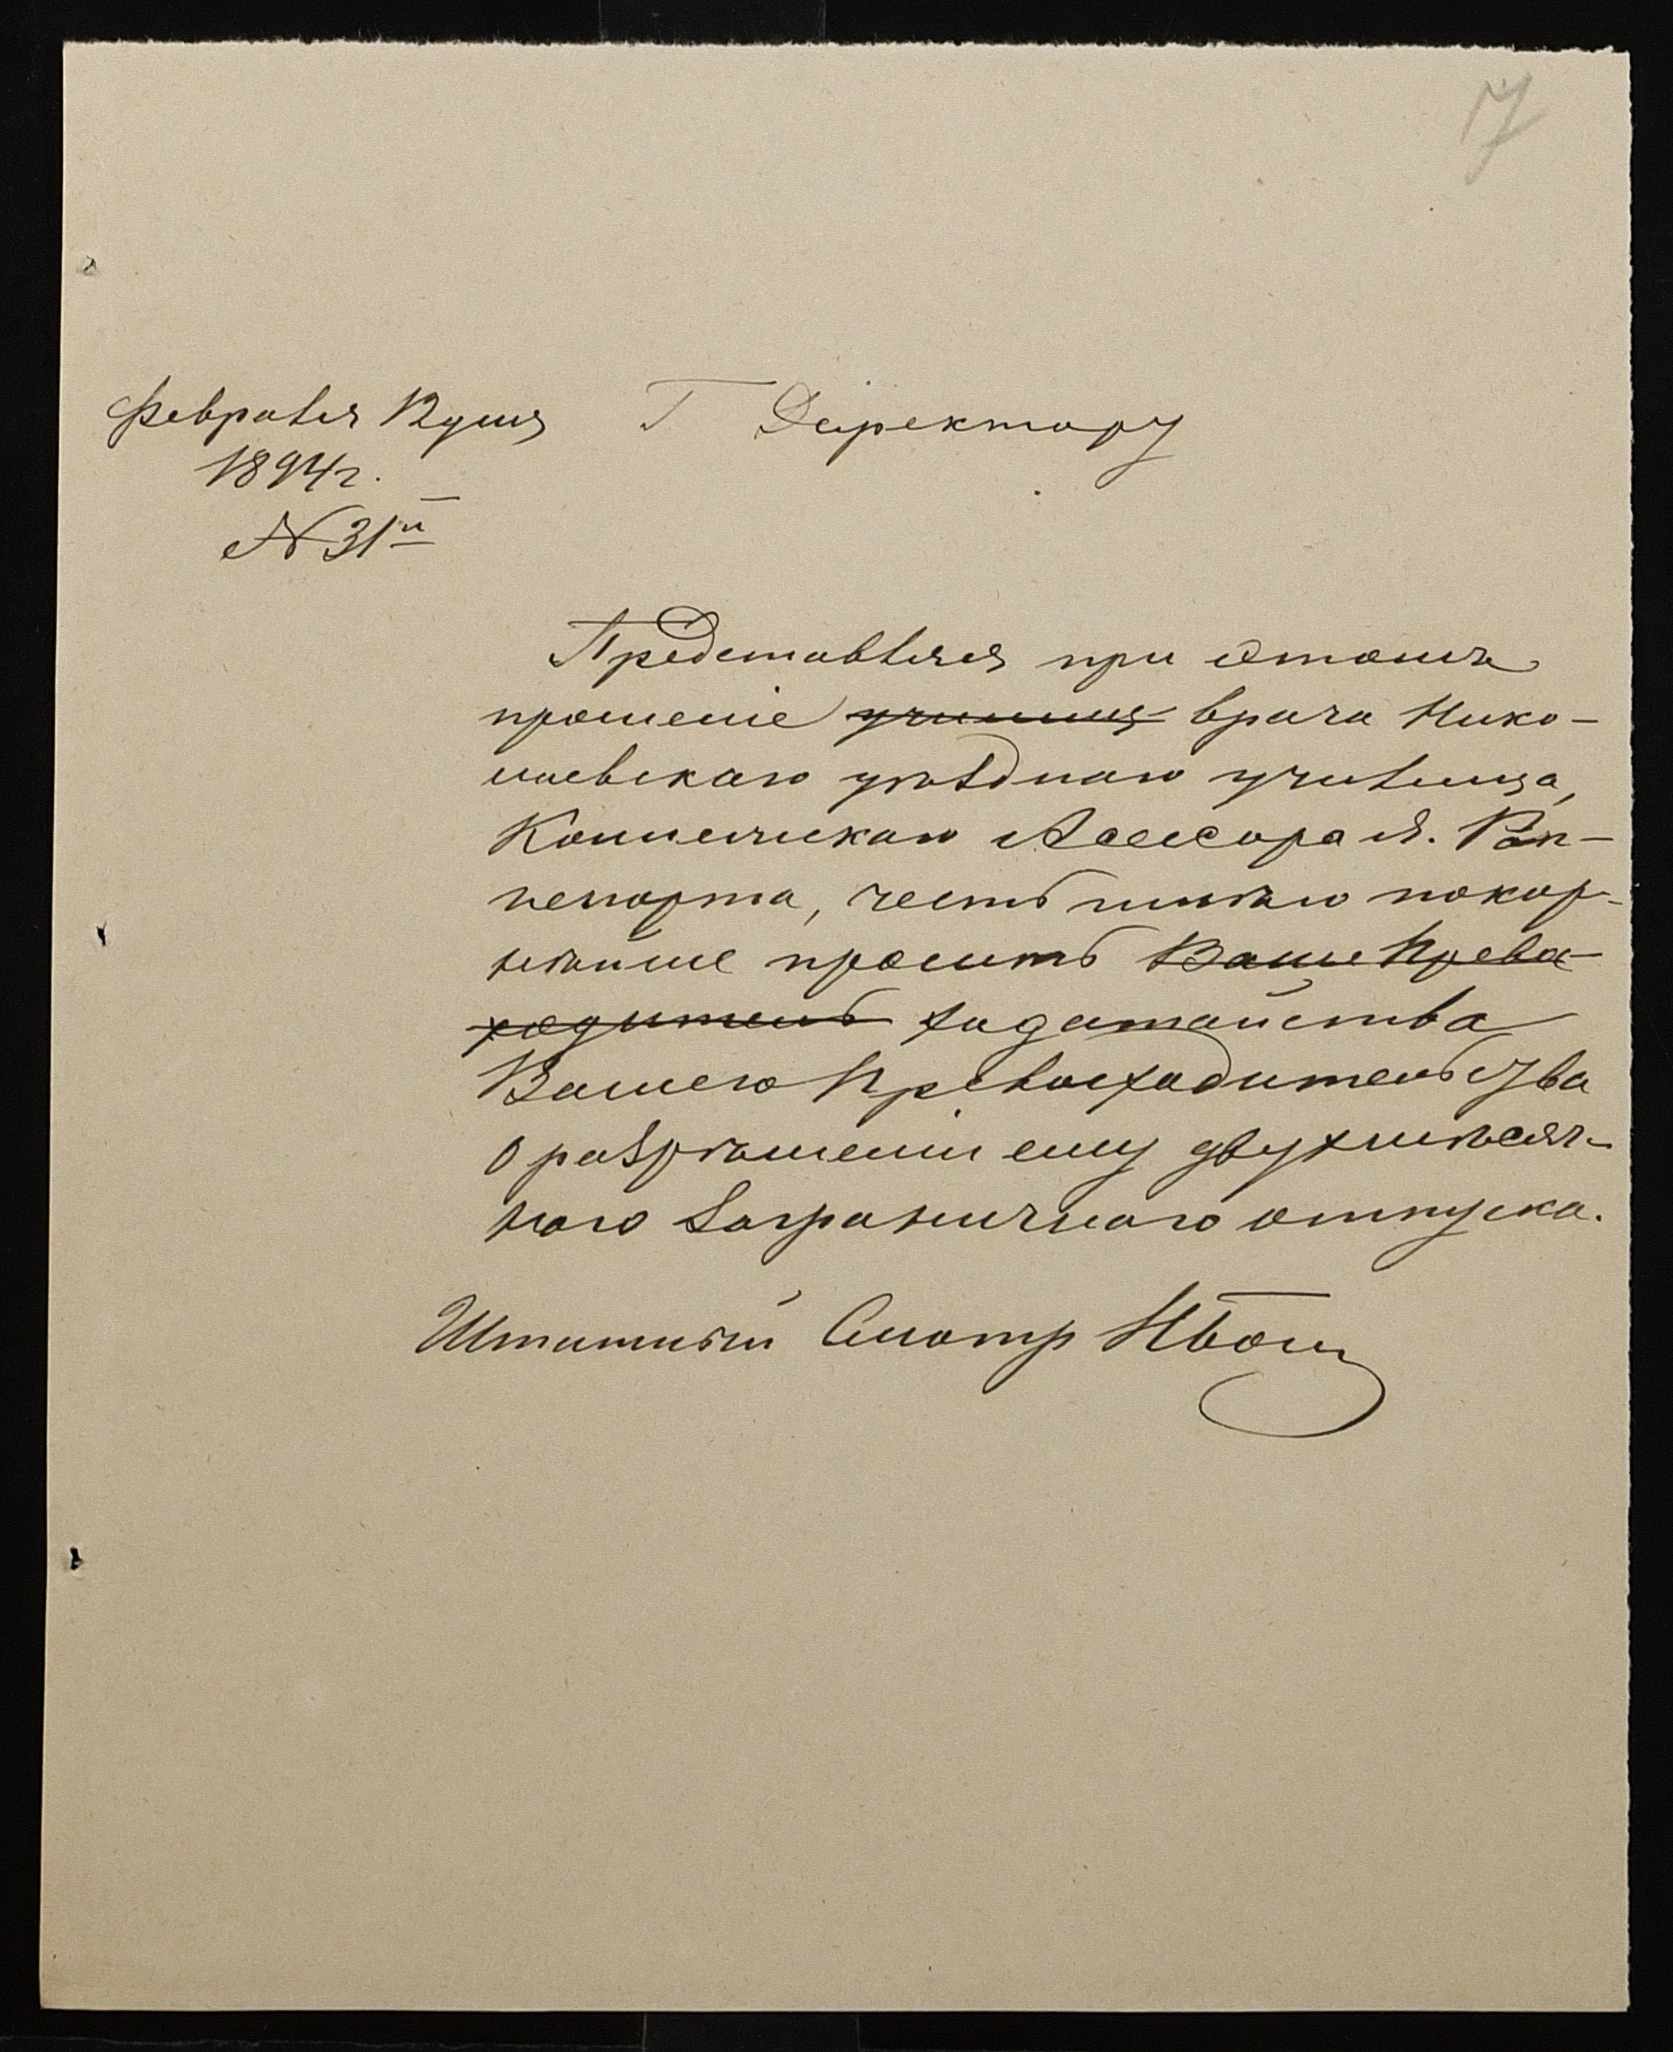 17
Февраля 12 дня
1894 г.
№ 31й
Г Директору
Представляя при этомъ
прошеніе училища врача Нико-
лаевскаго уѣзднаго училища,
Коллежскаго Ассесора Я. Рап-
попорта, честь имѣю покор-
нѣйше просить Ваше Прево-
сходитель ходатайства
Вашего Превосходительства
о разрѣшеніи ему двухмѣсяч-
наго заграничнаго отпуска.
Штатный Смотр